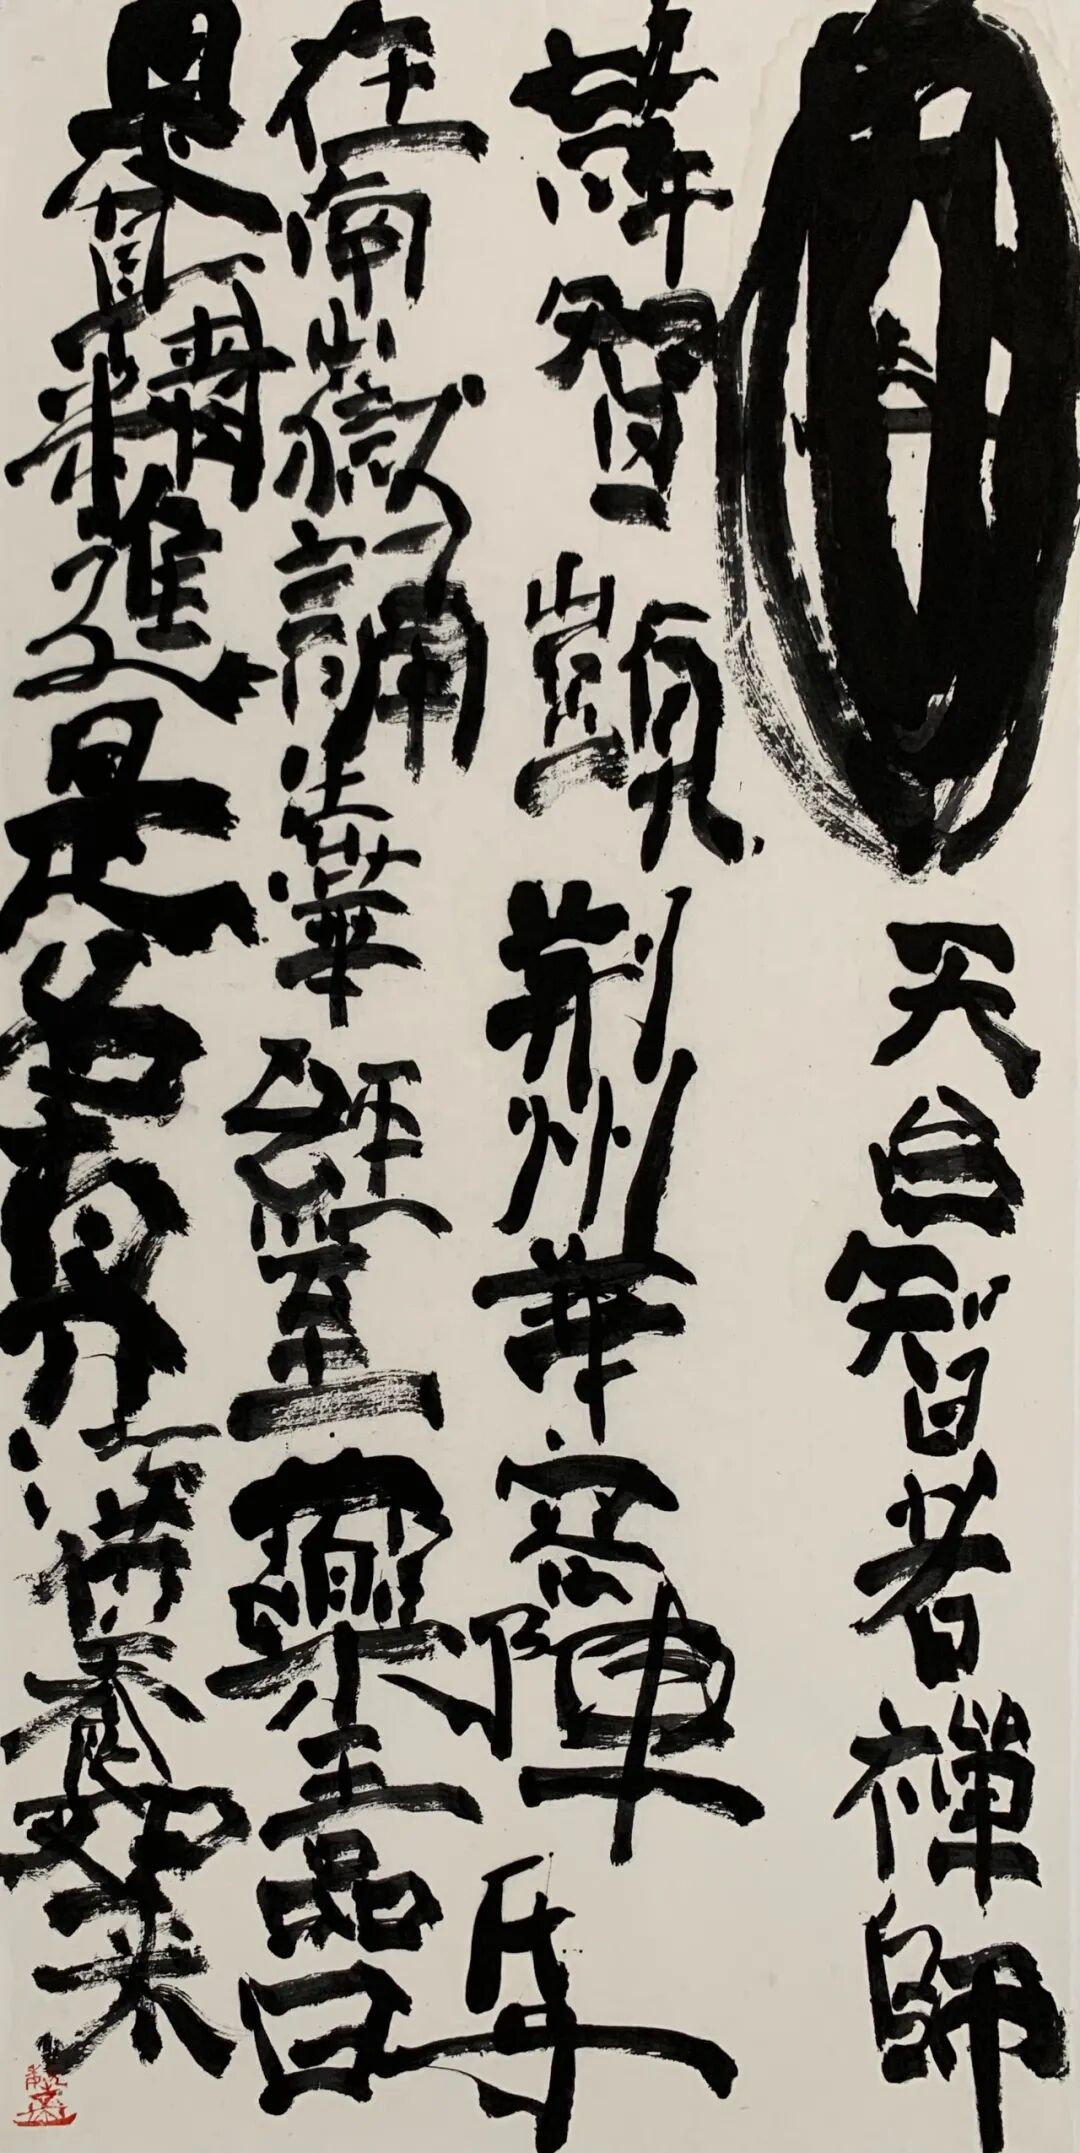 天台智者禪師
諱智顗荊州華容陳氏子
在南嶽誦法華經至藥王品曰
是真精進是名真法供養如来